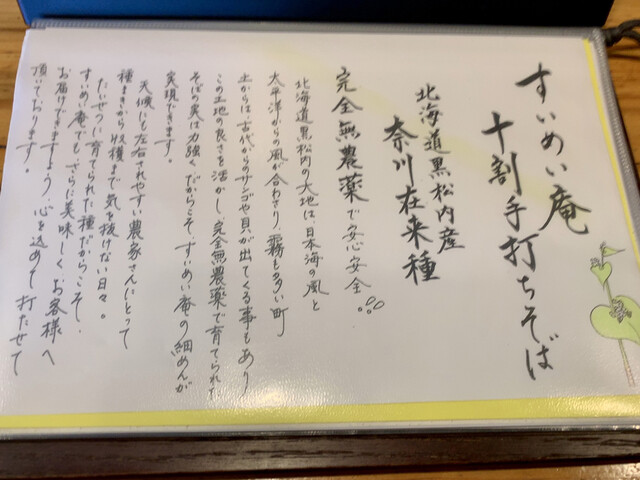 すいめい庵
十割手打ちそば
北海道黒松内産
奈川在来種
完全無農薬で安心安全
北海道黒松内の大地は、日本海の風と
太平洋からの風が合わさり、霧も多い町
土からは古代からのサンゴや貝が出てくる事もあり
この土地の良さを活かし、完全無農薬で育てられた
そばの実は力強い、だからこそ、すいめい庵の細めんが
実現できます。
天候にも左右されやすい農家さんにとって
種まきから収穫まで気を抜けない日々。
たいせつに育てられた種だからこそ、
すいめい庵でも、さらに美味しくお客様へ
お届けできますよう、心を込めて打たせて
頂いております。